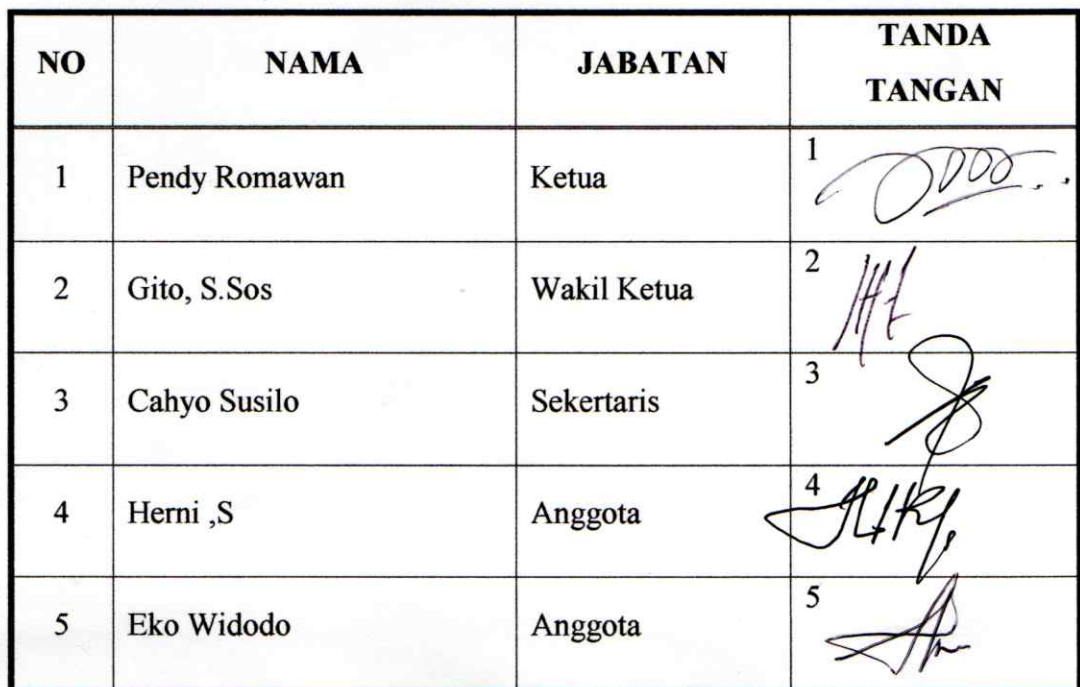 NO NAMA JABATAN TANDA TANGAN
1 Pendy Romawan Ketua 1
2 Gito, S.Sos Wakil Ketua 2
3 Cahyo Susilo Sekertaris 3
4 Herni ,S Anggota 4
5 Eko Widodo Anggota 5